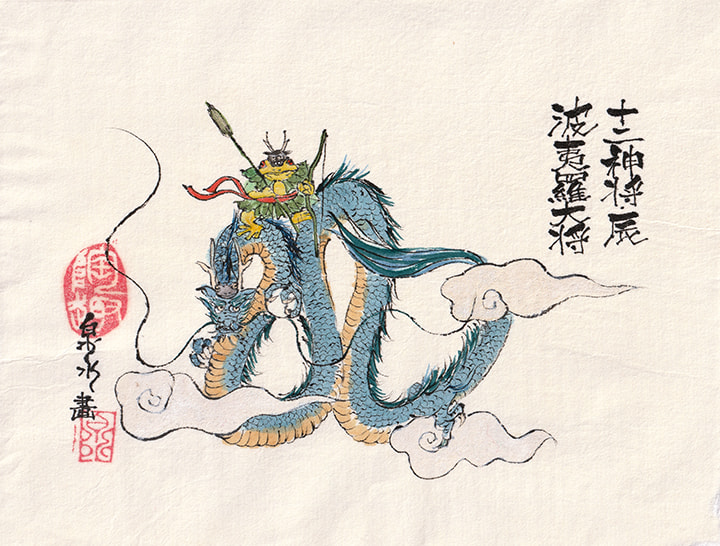 十二神将辰
波夷羅大将
泉水畫